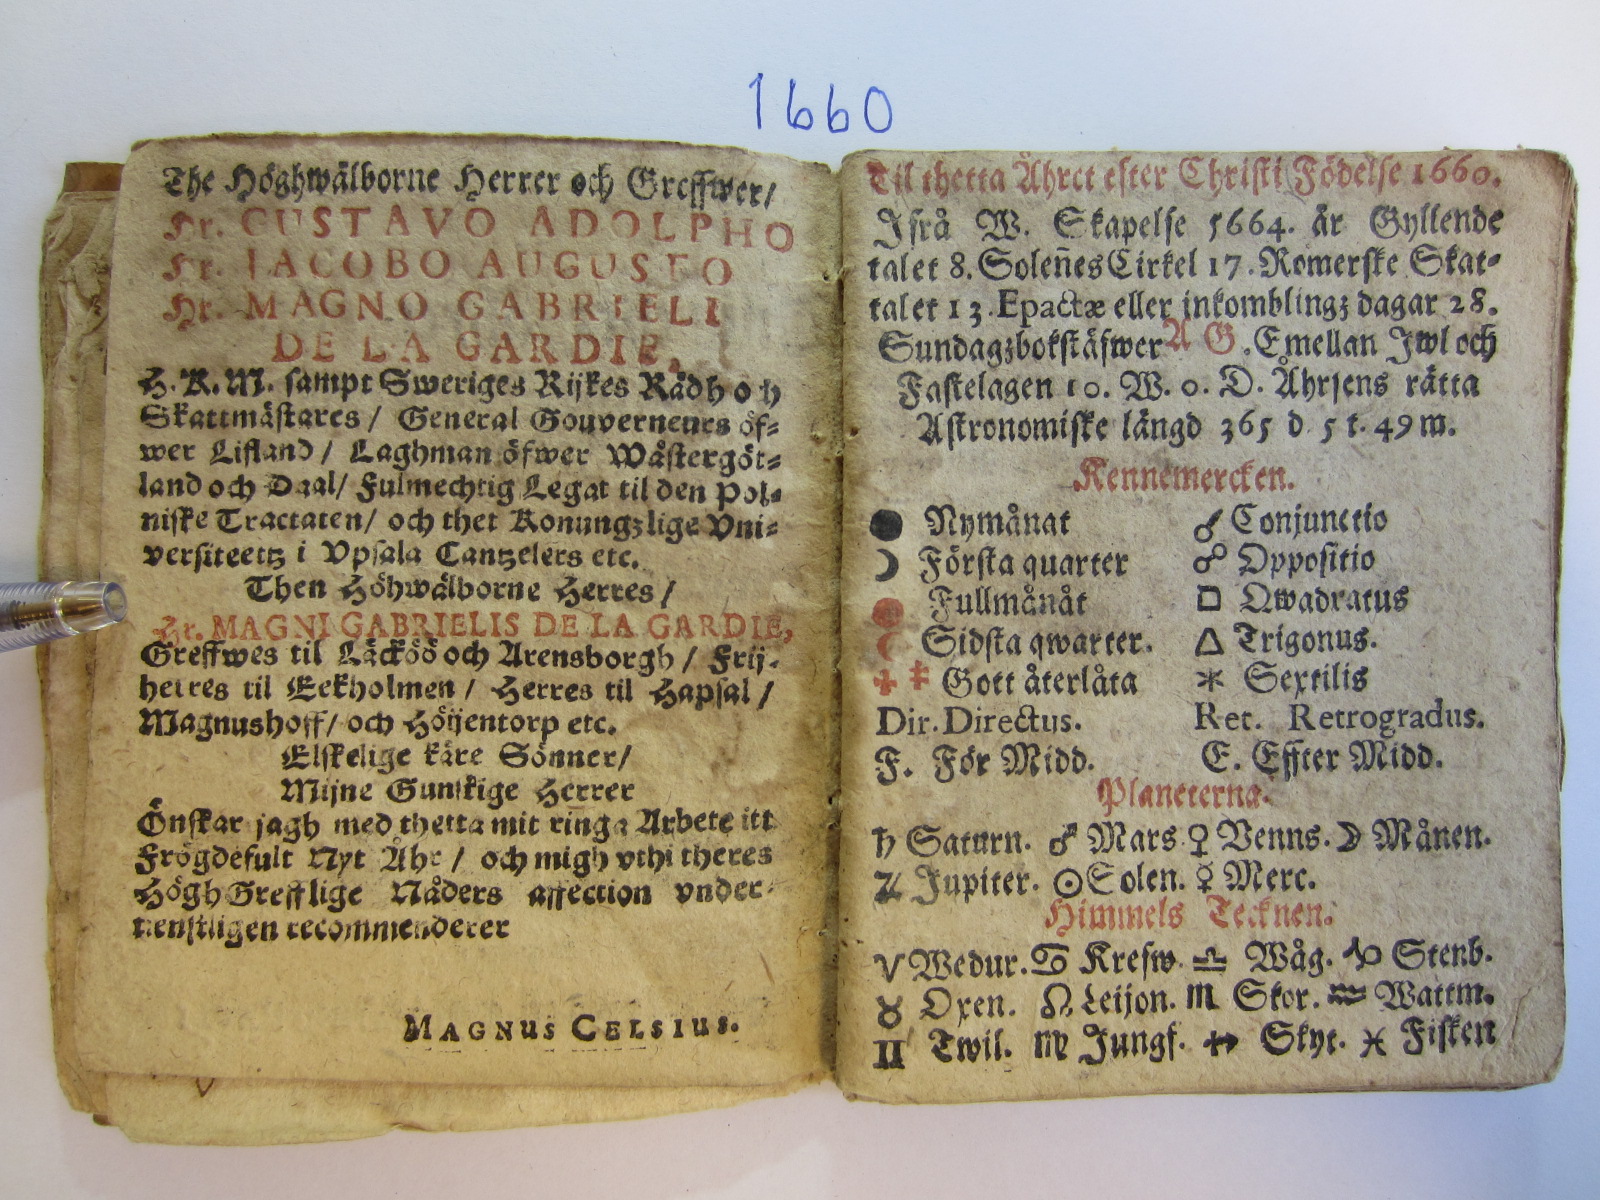 1660
The Höghwälborne Herrer och Greffwer/
Hr. GUSTAVO ADOLPHO
Hr. IACOBO AUGUSTO
Hr. MAGNO GABRIELI
DE LA GARDIE,
H. K. M. sampt Sweriges Rijkes Rådh och
Skattmästares / General Gouverneurs öf-
wer Lifland / Laghman öfwer Wästergöt-
land och Daal/ Fulmechtig Legat til den Pol-
niske Tractaten/ och thet Konungzlige Vni-
versiteetz i Vpsala Cantzelers etc.
Then Höhwälborne Herres /
Hr. MAGNI GABRIELIS DE LA GARDIE,
Greffwes til Läcköö och Arensborgh / Frij-
herres til Eekholmen / Herres til Hapsal /
Magnushoff/ och Höijentorp etc.
Elskelige käre Sönner/
Mijne Gunstige Herrer
Önskar jagh med thetta mit ringa Arbete itt
Frögdefult Nyt Åhr / och migh vthi theres
Högh Grefflige Nåders affection vnder-
tienstligen recommenderer
MAGNUS CELSIUS.
Til thetta Åhret efter Christi Födelse 1660.
Ifrå W. Skapelse 5664. är Gyllende
talet 8. Soleñes Cirkel 17. Romerske Skat-
talet 13. Epactæ eller inkomblingz dagar 28.
Sundagzbokstäfwer A G. Emellan Jwl och
Fastelagen 10. W. 0. D. Åhrsens rätta
Astronomiske längd 365 d 5 t. 49 m.
Kennemercken.
● Nymånat ☌ Conjunctio
☽ Första quarter ☍ Oppositio
● Fullmånat □ Qwadratus
☾ Sidsta qwarter. △ Trigonus.
✚ ‡ Gott återlåta ⚹ Sextilis
Dir. Directus. Ret. Retrogradus.
F. För Midd. E. Effter Midd.
Planeterna.
♄ Saturn. ♂ Mars ♀ Venns. ☽ Månen.
♃ Jupiter. ☉ Solen. ☿ Merc.
Himmels Tecknen.
♈ Wedur. ♋ Krefw. ♎ Wåg. ♑ Stenb.
♉ Oxen. ♌ Leijon. ♏ Skor. ♒ Wattm.
♊ Twil. ♍ Jungf. ♐ Skyt. ♓ Fisken